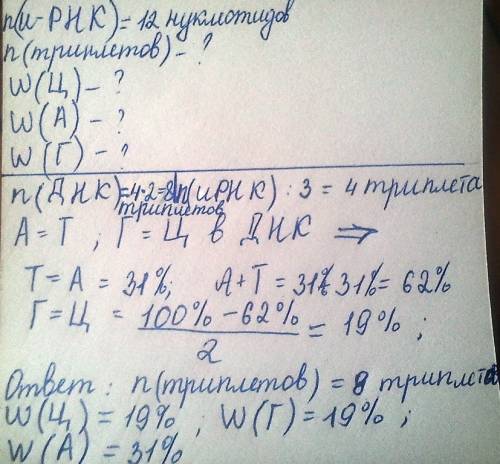 n(и-РНК) = 12 нуклеотидов
n(триплетов) - ?
W(Ц) - ?
W(А) - ?
W(Г) - ?
n(ДНК)=4·2=8 n(иРНК) : 3 = 4 триплета
триплетов
А = Т ; Г = Ц в ДНК ⇒
Т = А = 31%; А+Т = 31% 31% = 62%
Г = Ц = 100% - 62% / 2 = 19% ;
Ответ : n(триплетов) = 8 триплета
W(Ц) = 19% ; W(Г) = 19% ;
W(А) = 31%